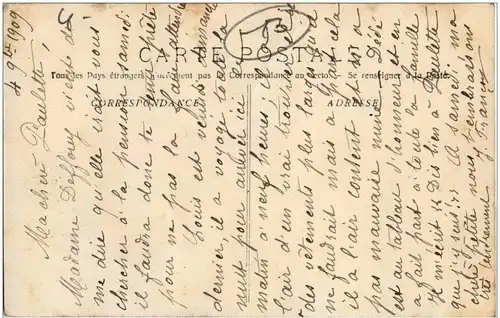 4 9bre 1909
CARTE POSTALE
Tous les Pays étrangers n'acceptent pas la Correspondance au recto. - Se renseigner à la Poste.
CORRESPONDANCE
ADRESSE
Ma chère Paulette!
Madame Deffaug vient de
me dire qu'elle irait vous
chercher à la pension samedi
il faudra donc te tenir prête
pour ne pas la faire attendre
Louis est venu dimanche
dernier il a voyagé toute la
nuit pour arriver ici
matin à neuf heures il
l'air d'un vrai tourlourou
des vêtements plus larges que
ne faudrait mais à part cela
il a l'air content et n'a
pas mauvaise mine. Dédé
est au tableau d'honneur et en
a fait part à toute la famille
Il m'écrit "Dis bien à Paulette
que j'y suis!" A samedi ma
chère petite nous t'embrassons
tendrement